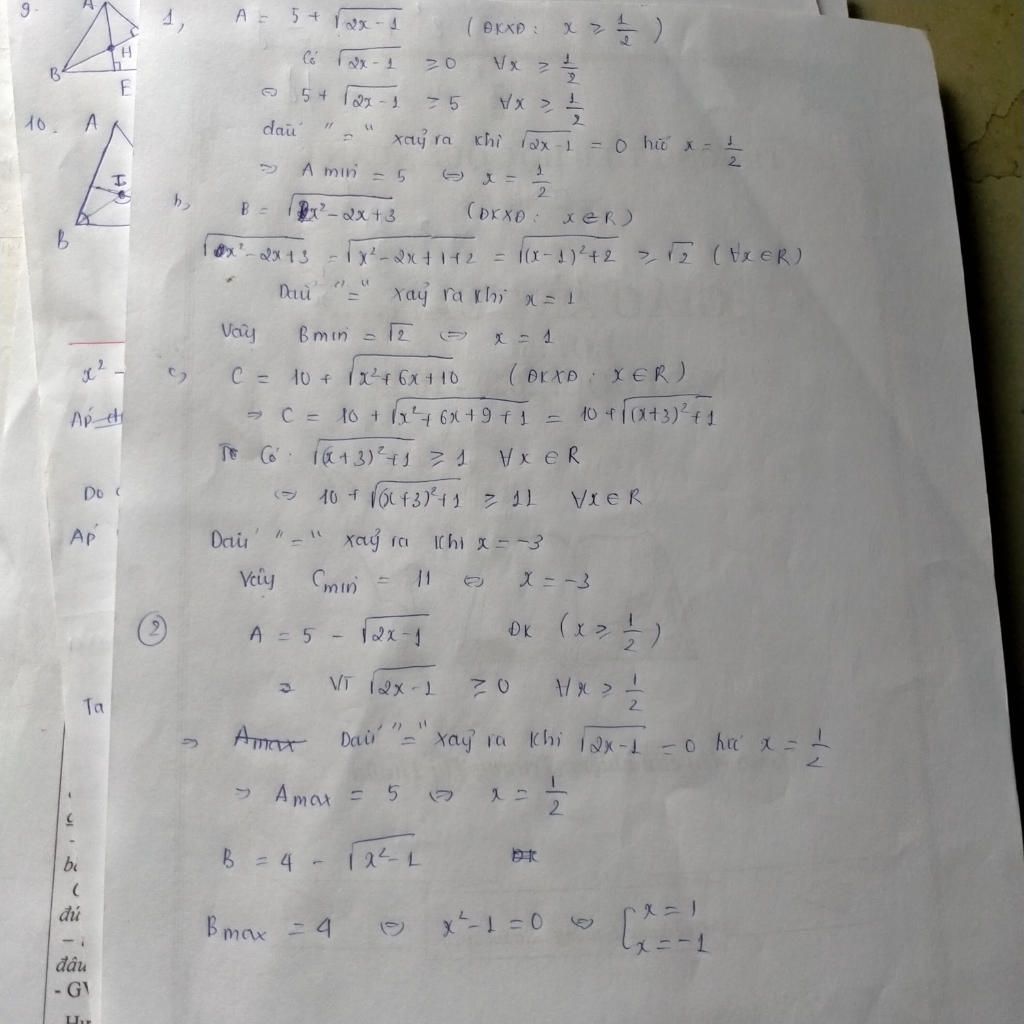 9.
A
H
B
E
10.
A
I
B
x² -
Áp
Do
Áp
Ta
bi
đú
đâu
- GV
1, A = 5 + √(2x-1) (ĐKXĐ: x ≥ 1/2)
Có √(2x-1) ≥ 0 ∀x ≥ 1/2
⇔ 5 + √(2x-1) ≥ 5 ∀x ≥ 1/2
dấu "=" xảy ra khi √(2x-1) = 0 hay x = 1/2
⇒ A min = 5 ⇔ x = 1/2
b, B = √(x²-2x+3) (ĐKXĐ: x ∈ R)
√(x²-2x+3) = √(x²-2x+1+2) = √((x-1)²+2) ≥ √2 (∀x ∈ R)
Dấu "=" xảy ra khi x = 1
Vậy Bmin = √2 ⇔ x = 1
c, C = 10 + √(x²+6x+10) (ĐKXĐ: x ∈ R)
⇒ C = 10 + √(x²+6x+9+1) = 10 + √((x+3)²+1)
Có: √((x+3)²+1) ≥ 1 ∀x ∈ R
⇔ 10 + √((x+3)²+1) ≥ 11 ∀x ∈ R
Dấu "=" xảy ra khi x = -3
Vậy Cmin = 11 ⇔ x = -3
② A = 5 - √(2x-1) ĐK (x ≥ 1/2)
Vì √(2x-1) ≥ 0 ∀x ≥ 1/2
⇒ Amax Dấu "=" xảy ra khi √(2x-1) = 0 hay x = 1/2
⇒ Amax = 5 ⇔ x = 1/2
B = 4 - √(x²-1) ĐK
Bmax = 4 ⇔ x²-1 = 0 ⇔ [x = 1
x = -1